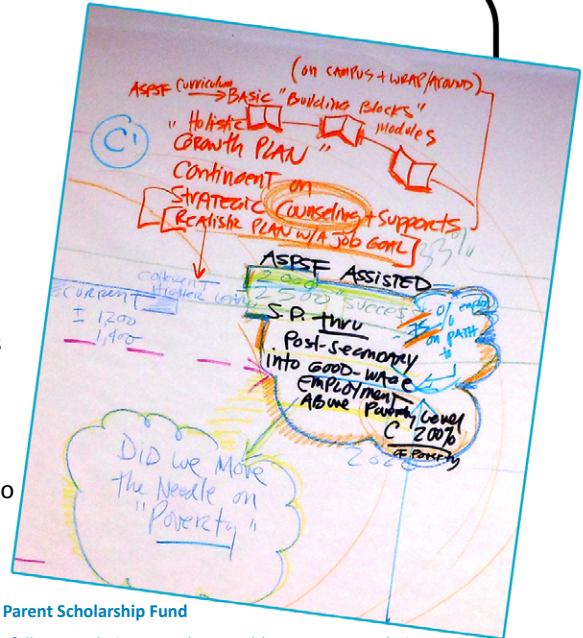 (on CAMPUS + WRAP/AROUND)
ASPSF Curriculum → BASIC "Building Blocks"
Modules
"Holistic
GROWTH PLAN"
C'
Contingent on
STRATEGIC Counseling + Supports
REALISTIC PLAN W/A JOB GOAL
33%
ASPSF ASSISTED
CURRENT
± 1,200
1,400
2000
2500 "success"
75%
on PATH
to
S.P. thru
Post-Secondary
into GOOD-WAGE
EMPLOYMENT
ABOVE Poverty Level
C 200%
OF POVERTY
DID WE MOVE
the Needle on
"Poverty"
s
o
Parent Scholarship Fund